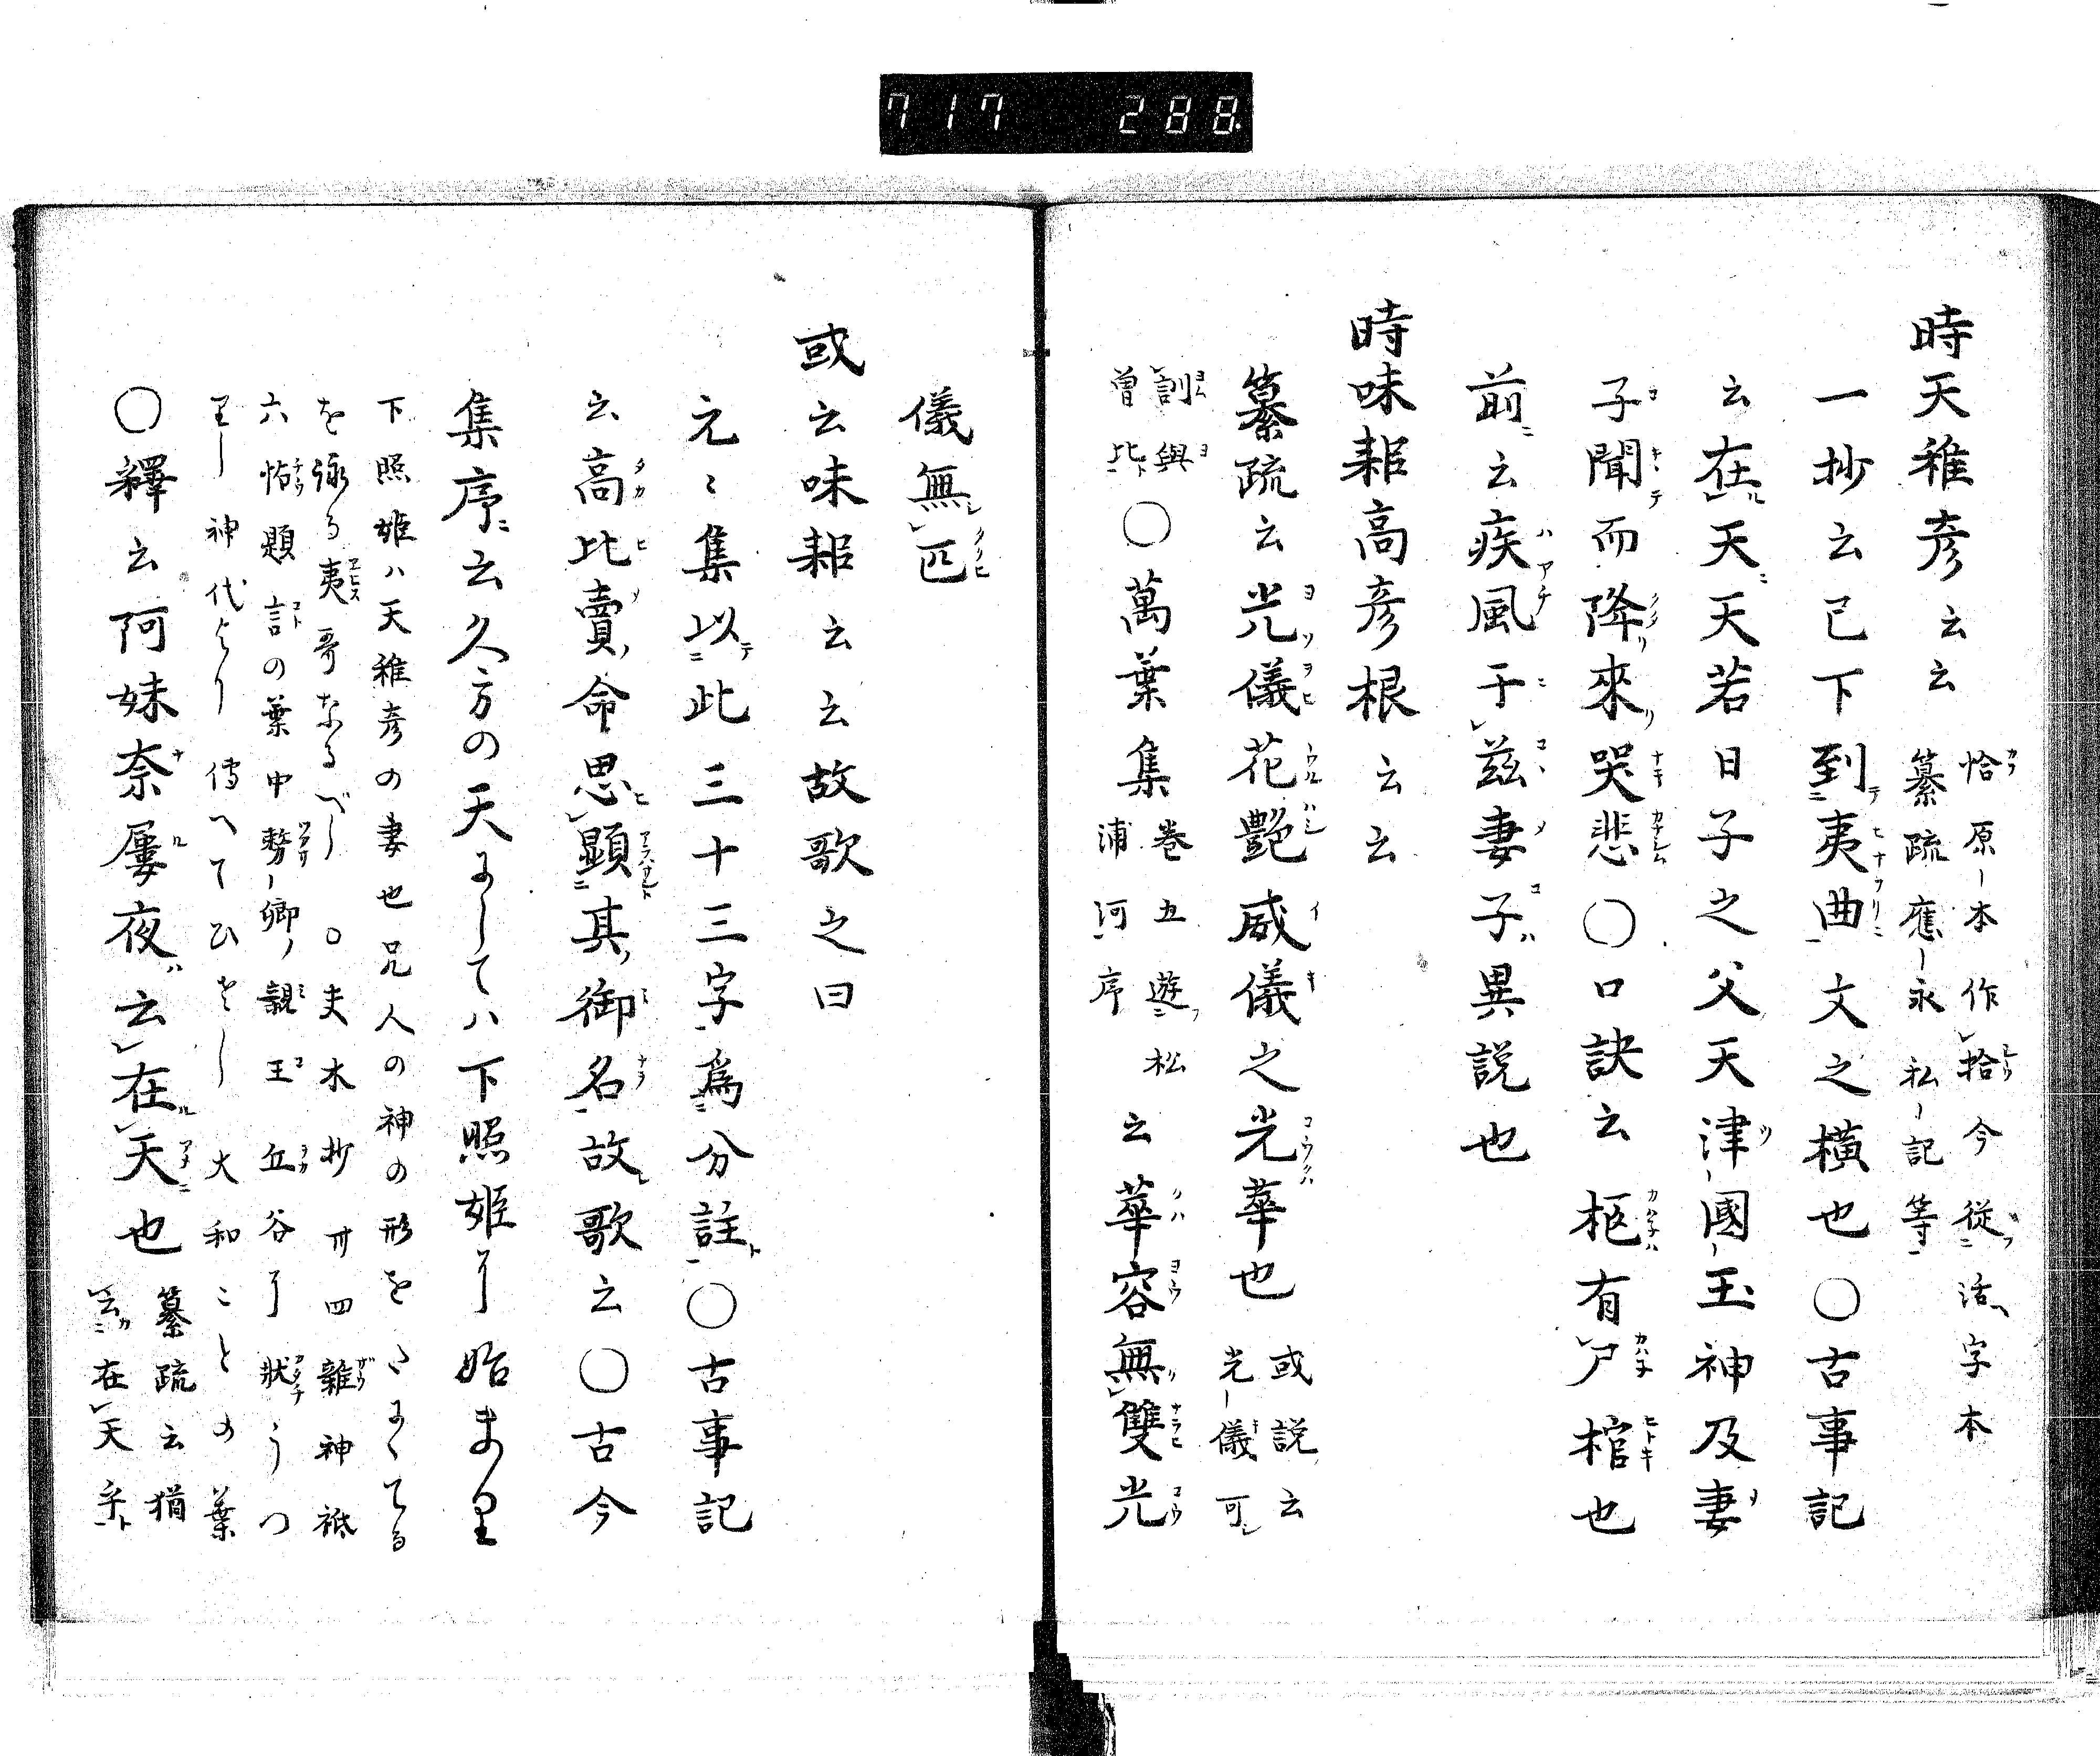 717 288
時天稚彦云云
恰原本作拾今從活字本
纂疏應永私記等
一抄云已下到夷曲文之横也○古事記
云在天天若日子之父天津國玉神及妻
子聞而降來哭悲○口訣云柩有尸棺也
前云疾風于茲妻子異説也
時味耜高彦根云云
纂疏云光儀花艶威儀之光華也
或説云
光儀可
訓與
曽比
○萬葉集
巻五遊松
浦河序
云華容無雙光
儀無匹
或云味耜云云故歌之曰
元々集以此三十三字為分註○古事記
云高比賣命思顕其御名故歌云○古今
集序云久方の天にしてハ下照姫に始まり
下照姫ハ天稚彦の妻也兄人の神の形を
を詠る夷哥なるべし○夫木抄廿四雑神祇
六帖題言の葉中務卿親王丘谷に状うつ
神代より傳へてひさし大和ことの葉
○釋云阿妹奈屢夜云在天也
纂疏云猶
云在天乎